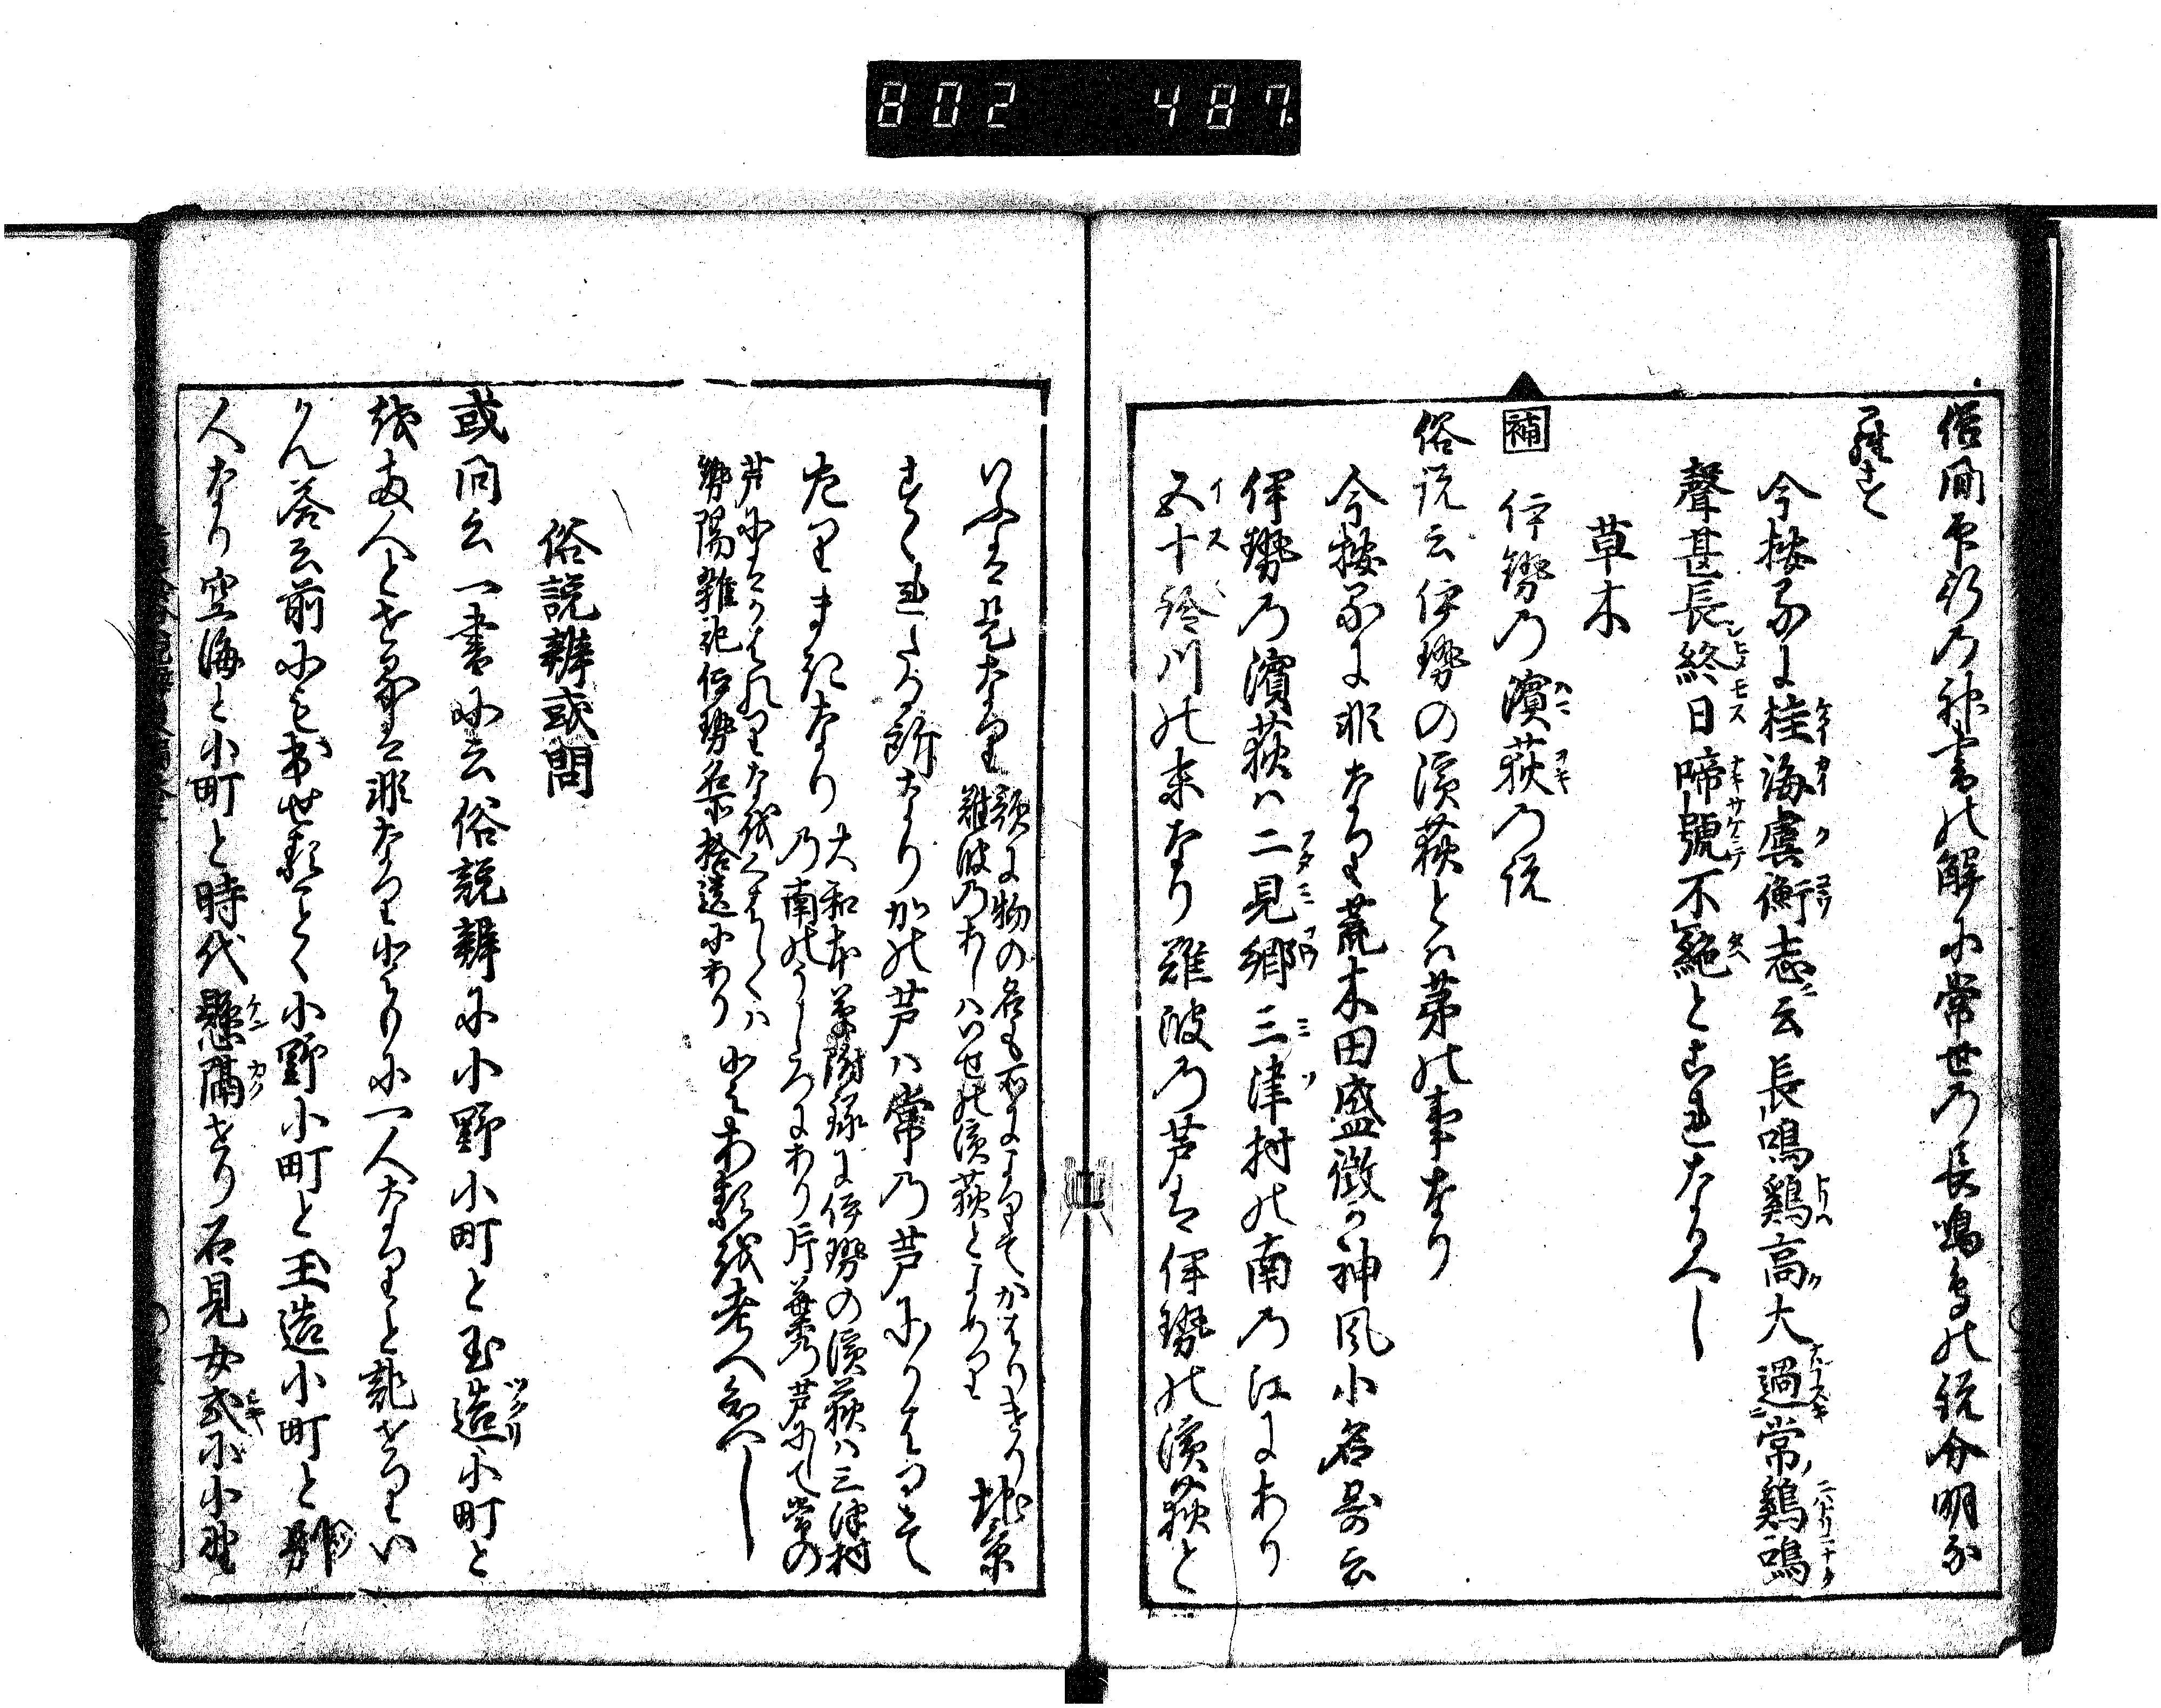 802 487
俗間印行の神書の解に常世の長鳴鳥の説分明な
らすと
今按るに桂海虞衡志云長鳴鷄高大過常鷄鳴
聲甚長終日啼號不絶とこれなるへし
草木
補 伊勢の濱荻の説
俗説云伊勢の濱荻とは茅の事なり
今按るに非なり荒木田盛徴か神風小名寄云
伊勢の濱荻ハ二見郷三津村の南の江にあり
五十鈴川の末なり難波の芦を伊勢の濱荻と
いふは是なり 歌に物の名も所によりてかはりけり
難波のあしハいせの濱荻とよめり 地景
すくれたる所なりかの芦ハ常の芦にかはりて
たりまきなり 大和本草附録に伊勢の濱荻ハ三津村
の南のうしろにあり片葉の芦にて常の
芦にはかはれりなをくはしくハ
勢陽雜記伊勢名所拾遺にあり
俗説辨或問
或问云一書に云俗説辨に小野小町と玉造小町と
を両人とするは非なり
けん答云前にも小野小町と玉造小町と別
人なり空海と小町と時代懸隔せり石見女式に小野